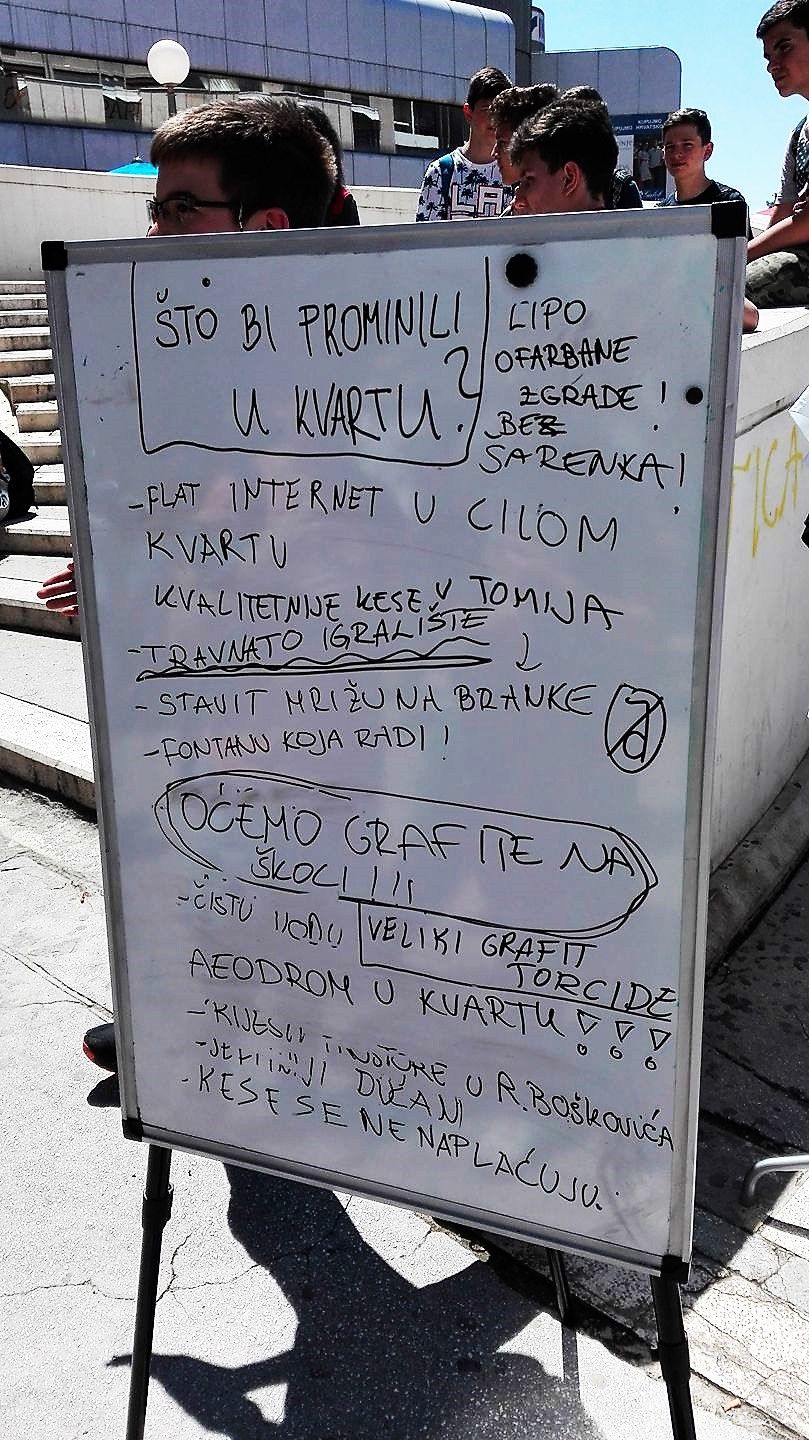 ŠTO BI PROMINILI
U KVARTU?
LIPO
OFARBANE
ZGRADE!
BEZ
ŠARENKA!
-FLAT INTERNET U CILOM
KVARTU
KVALITETNIJE KESE U TOMIJA
-TRAVNATO IGRALIŠTE
-STAVIT MRIŽU NA BRANKE
-FONTANU KOJA RADI!
OĆEMO GRAFITE NA
ŠKOLI!!!
-ČISTU VODU
VELIKI GRAFIT
TORCIDE
AEODROM U KVARTU!!!
U R. BOŠKOVIĆA
DUĆANI
-KESE SE NE NAPLAĆUJU.
KUPUJMO
HRVATSKO
LA